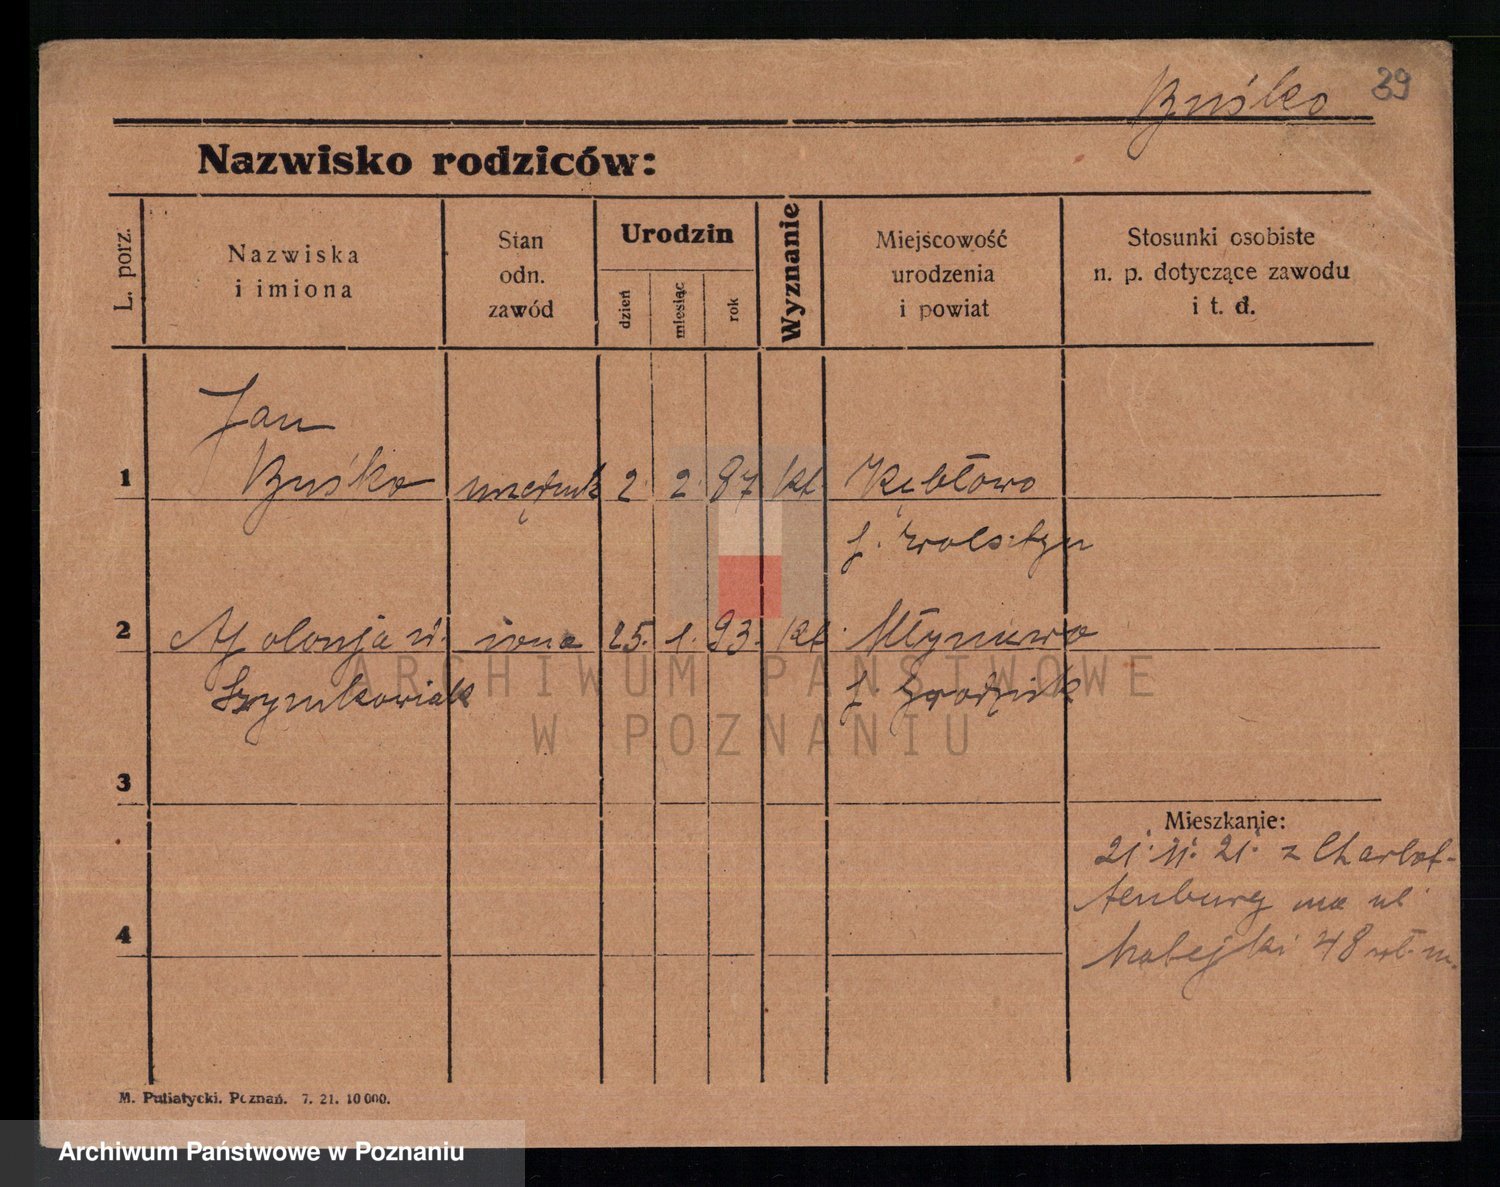 Buśko 39
Nazwisko rodziców:
L. porz.
Nazwiska
i imiona
Stan
odn.
zawód
Urodzin
dzień
miesiąc
rok
Wyznanie
Miejscowość
urodzenia
i powiat
Stosunki osobiste
n. p. dotyczące zawodu
i t. d.
Jan
1 Buśko 2. 2. 87 kt Kębłowo
p. Wolsztyn
2 Apolonja żona 25. 1. 93. kt. Młyniewo
Szymkowiak p. Grodzisk
ARCHIWUM PAŃSTWOWE
W POZNANIU
3
Mieszkanie:
21. 11. 21. z Charlot-
tenburg na ul
4 Matejki 48
M. Putiatycki. Poznań. 7. 21. 10 000.
Archiwum Państwowe w Poznaniu